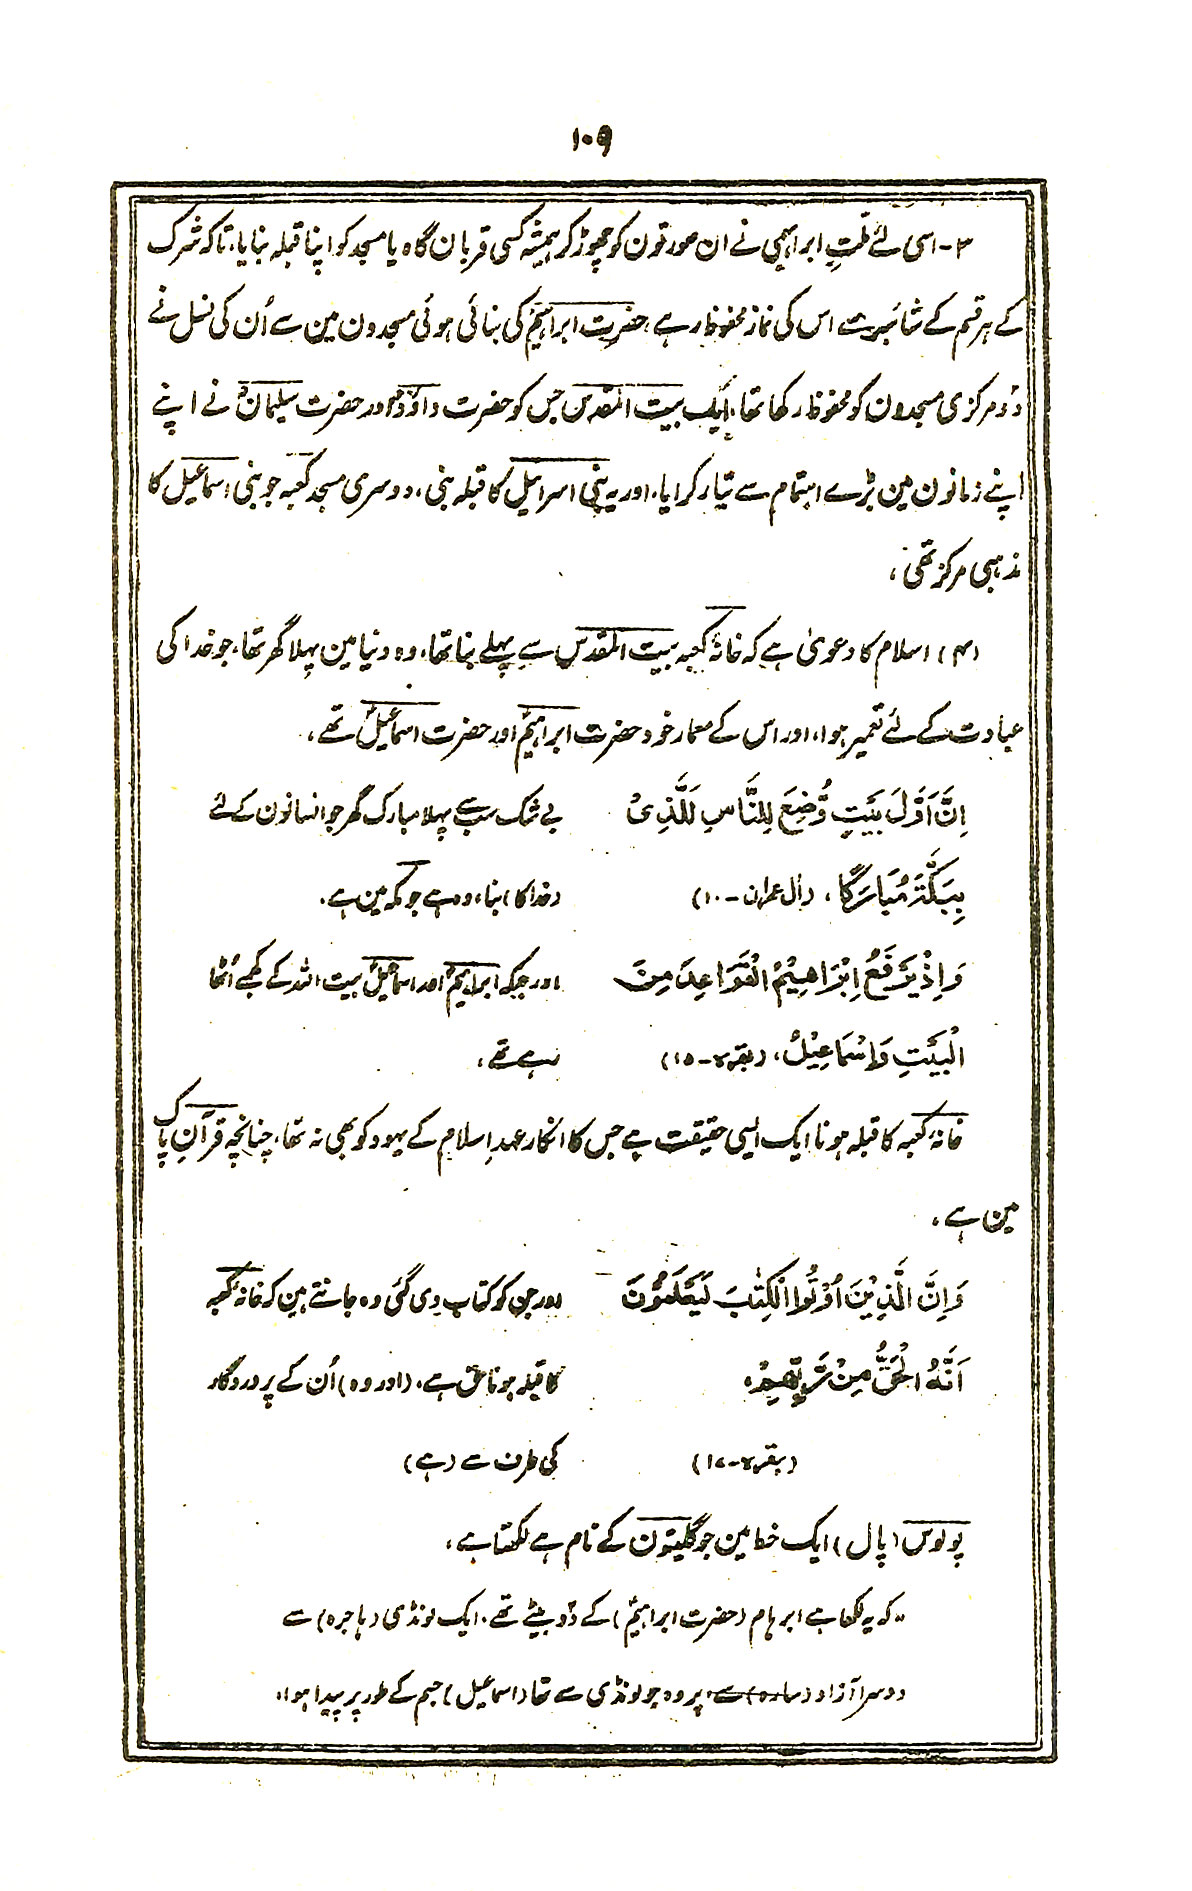 ۱۰۹
۳- اسی لئے ملّتِ ابراہیمی نے ان صورتون کو چھوڑ کر ہمیشہ کسی قربان گاہ یا مسجد کو اپنا قبلہ بنایا، تاکہ شرک
کے ہر قسم کے شائبہ سے اس کی نماز محفوظ رہے، حضرت ابراہیمؑ کی بنائی ہوئی مسجدون مین سے اُن کی نسل نے
دو مرکزی مسجدون کو محفوظ رکھا تھا، ایک بیت المقدس جس کو حضرت داؤدؑ اور حضرت سلیمانؑ نے اپنے
اپنے زمانون مین بڑے اہتمام سے تیار کرایا، اور یہ بنی اسرائیل کا قبلہ بنی، دوسری مسجد کعبہ جو بنی اسماعیل کا
مذہبی مرکز تھی،
(۴) اسلام کا دعویٰ ہے کہ خانۂ کعبہ بیت المقدس سے پہلے بنا تھا، وہ دنیا مین پہلا گھر تھا، جو خدا کی
عبادت کے لئے تعمیر ہوا، اور اس کے معمار خود حضرت ابراہیمؑ اور حضرت اسماعیلؑ تھے،
اِنَّ اَوَّلَ بَیْتٍ وُّضِعَ لِلنَّاسِ لَلَّذِیْ بے شک سب سے پہلا مبارک گھر جو انسانون کے لئے
بِبَکَّۃَ مُبَارَکًا، (اٰل عمران-۱۰) (خدا کا) بنا، وہ ہے جو مکہ مین ہے،
وَاِذْ یَرْفَعُ اِبْرَاهِیْمُ الْقَوَاعِدَ مِنَ اور جبکہ ابراہیمؑ اور اسماعیلؑ بیت اللہ کے کھمبے اٹھا
الْبَیْتِ وَاِسْمَاعِیْلُ، (بقرہ-۱۵) رہے تھے،
خانۂ کعبہ کا قبلہ ہونا ایک ایسی حقیقت ہے جس کا انکار عہدِ اسلام کے یہود کو بھی نہ تھا، چنانچہ قرآنِ پاک
مین ہے،
وَاِنَّ الَّذِیْنَ اُوْتُوا الْکِتٰبَ لَیَعْلَمُوْنَ اور جن کو کتاب دی گئی وہ جانتے ہین کہ خانۂ کعبہ
اَنَّهُ الْحَقُّ مِنْ رَّبِّهِمْ، کا قبلہ ہونا حق ہے، (اور وہ) اُن کے پروردگار
(بقرہ-۱۷) کی طرف سے (ہے)
پولوس (پال) ایک خط مین جو گلیتون کے نام ہے لکھتا ہے،
"کہ یہ لکھا ہے ابرہام (حضرت ابراہیمؑ) کے دو بیٹے تھے، ایک لونڈی (ہاجرہ) سے
دوسرا آزاد (سارہ) سے، پر وہ جو لونڈی سے تھا (اسماعیل) جسم کے طور پر پیدا ہوا،